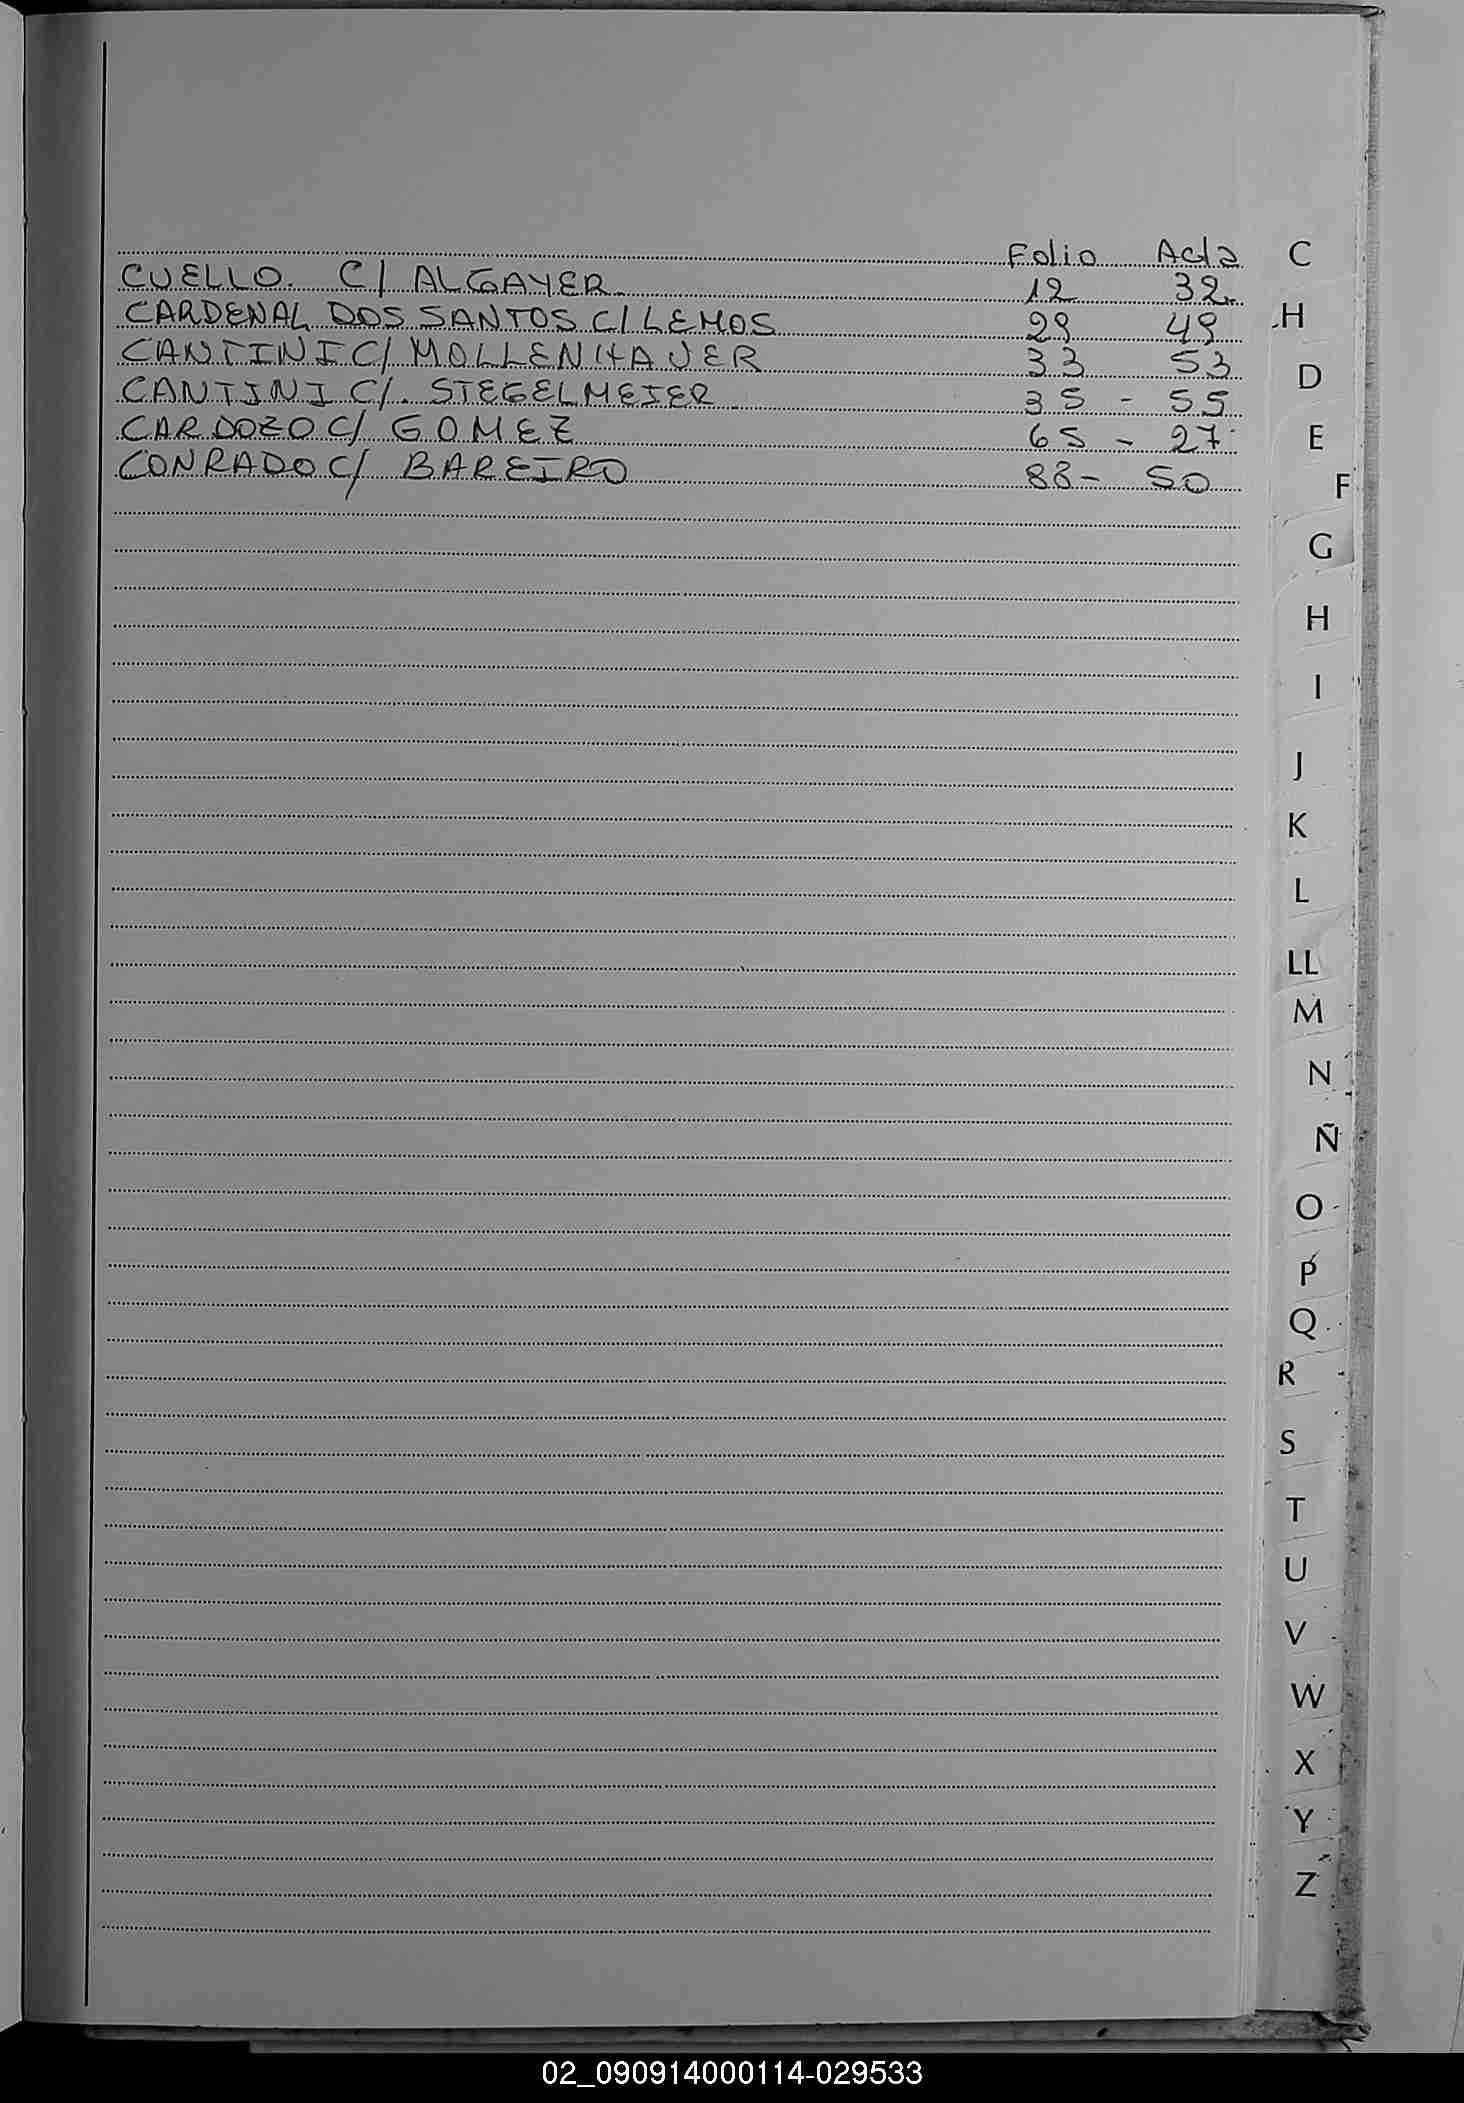 Folio Acta C
CUELLO. C/ ALGAYER. 12 32
CARDENAL DOS SANTOS C/ LEMOS 29 49
CANTINI C/ MOLLENHAUER 33 53
CANTINI C/. STEGELMEIER 35 - 55
CARDOZO C/ GOMEZ 65 - 27
CONRADO C/ BAREIRO 88 - 50
H
D
E
F
G
H
I
J
K
L
LL
M
N
Ñ
O
P
Q
R
S
T
U
V
W
X
Y
Z
02_090914000114-029533